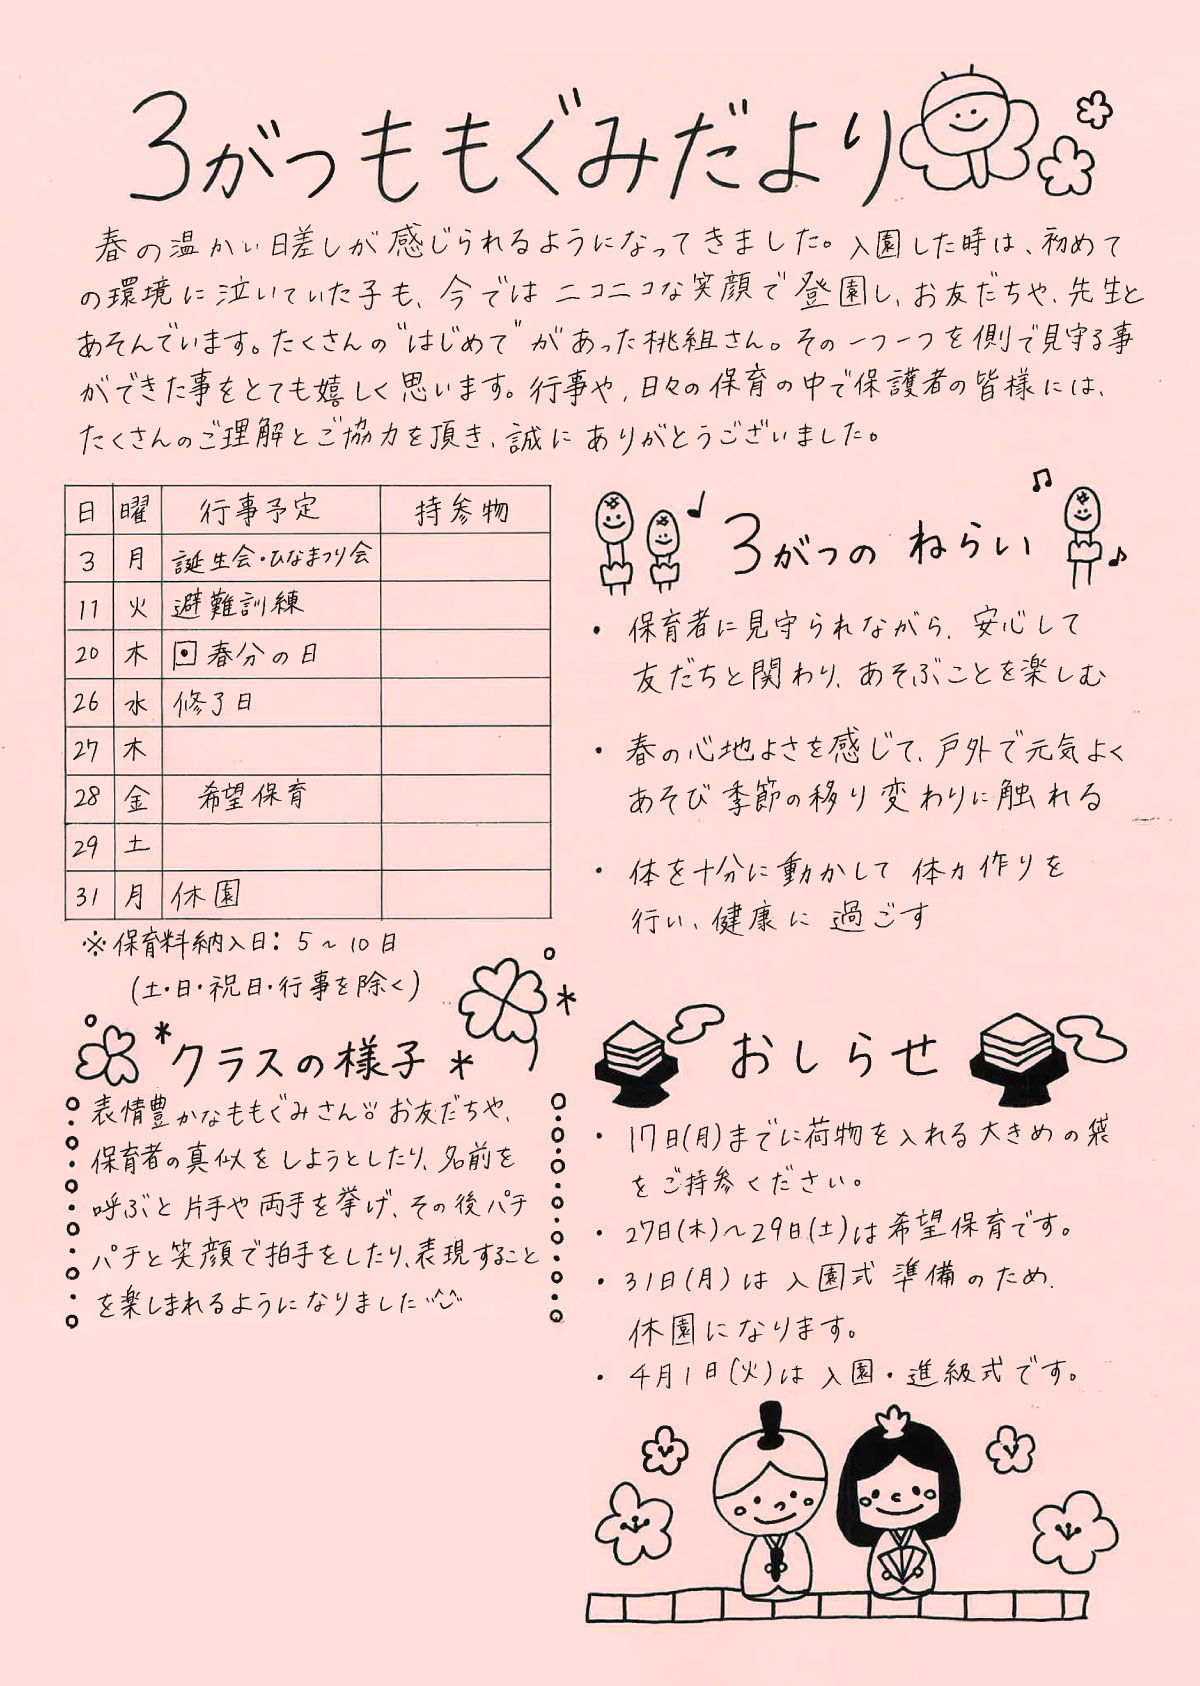 3がつももぐみだより
春の温かい日差しが感じられるようになってきました。入園した時は、初めて
の環境に泣いていた子も、今ではニコニコな笑顔で登園し、お友だちや、先生と
あそんでいます。たくさんの"はじめて"があった桃組さん。その一つ一つを側で見守る事
ができた事をとても嬉しく思います。行事や、日々の保育の中で保護者の皆様には、
たくさんのご理解とご協力を頂き、誠にありがとうございました。
日 曜 行事予定 持参物
3 月 誕生会・ひなまつり会
11 火 避難訓練
20 木 春分の日
26 水 修了日
27 木
28 金 希望保育
29 土
31 月 休園
※保育料納入日：5～10日
(土・日・祝日・行事を除く)
クラスの様子
表情豊かなももぐみさん お友だちや、
保育者の真似をしようとしたり、名前を
呼ぶと片手や両手を挙げ、その後パチ
パチと笑顔で拍手をしたり、表現すること
を楽しまれるようになりました
3がつの ねらい
・保育者に見守られながら、安心して
友だちと関わり、あそぶことを楽しむ
・春の心地よさを感じて、戸外で元気よく
あそび季節の移り変わりに触れる
・体を十分に動かして 体力作りを
行い、健康に過ごす
おしらせ
・17日(月)までに荷物を入れる大きめの袋
をご持参ください。
・27日(木)～29日(土)は希望保育です。
・31日(月)は入園式準備のため、
休園になります。
・4月1日(火)は入園・進級式です。